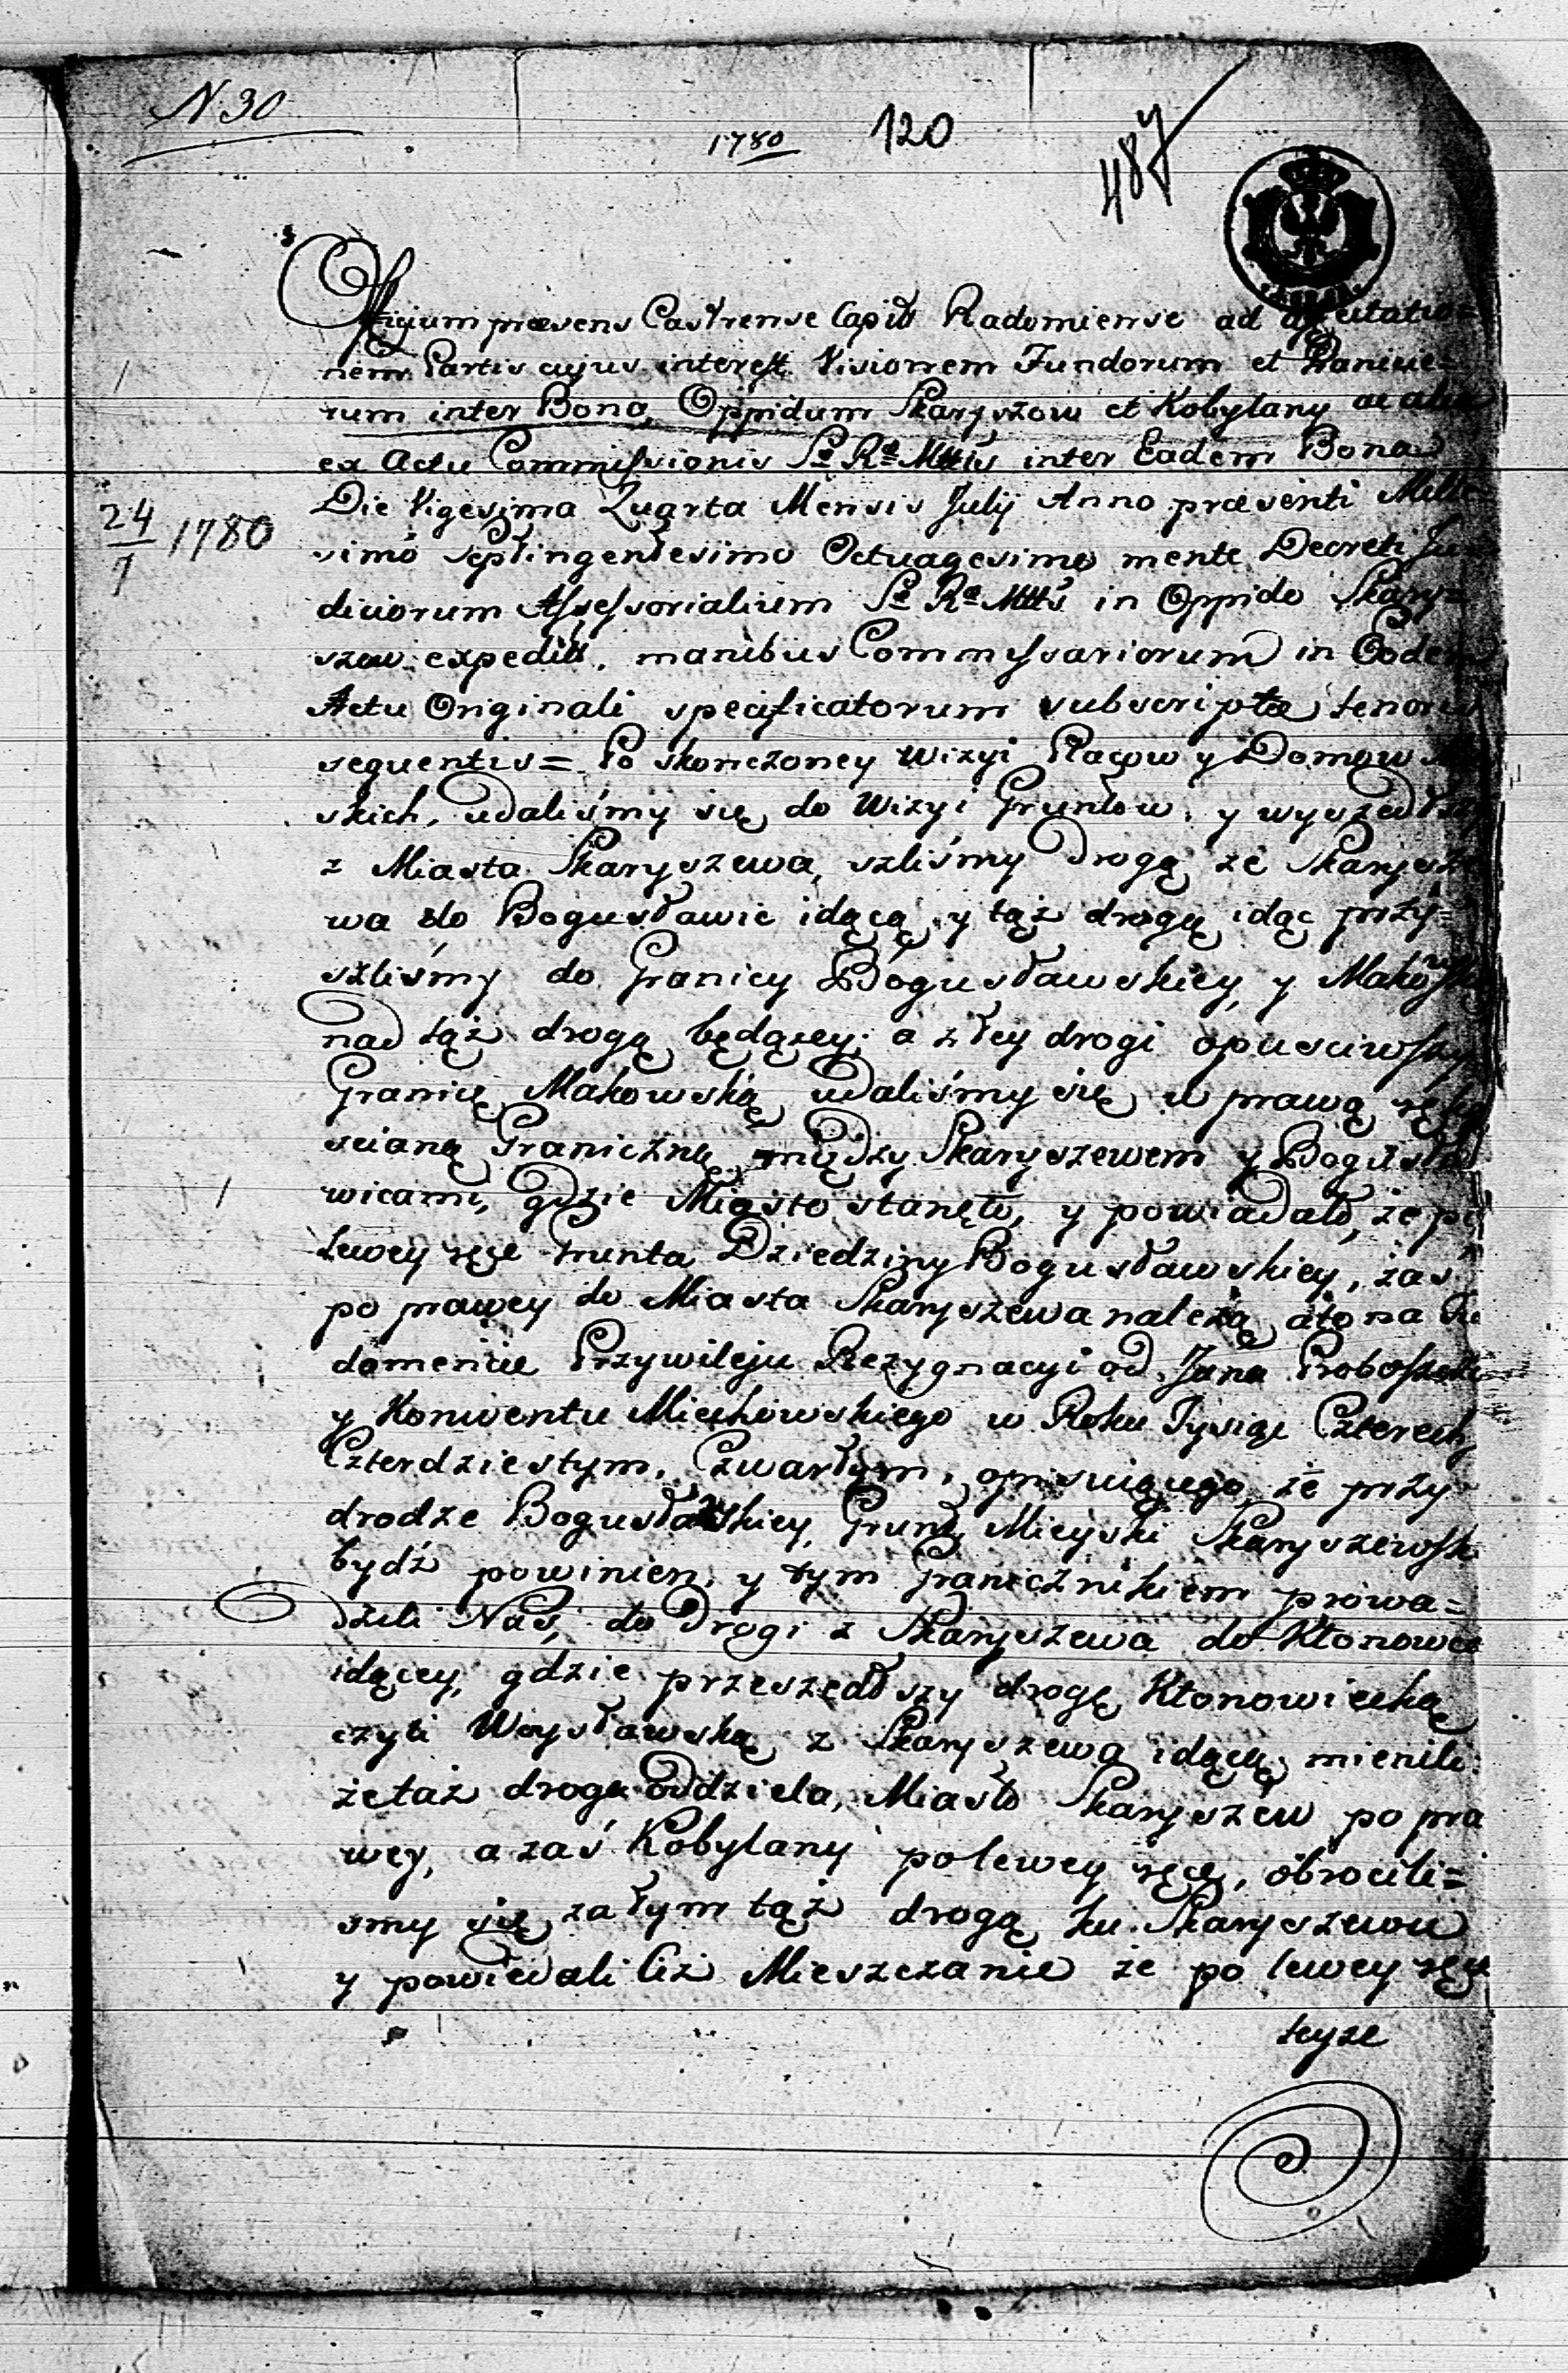 N 30
1780
120
487
Officium præsens Castrense Capit Radomiense ad
nem Partis cujus interest Visionem Fundorum et Granicie=
rum inter Bona, Oppidum Skaryszow et Kobylany ac alia
ex Actu Commissionis S. R. Mttis inter Eadem Bona
Die Vigesima Quarta Mensis Julij Anno præsenti Mille
24/7 1780
simo septingentesimo Octuagesimo mente Decreti Ju
diciorum Assessorialium S. R. Mttis in Oppido Skary=
szew expedit, manibus Commissariorum in Eodem
Actu Originali specificatorum subscripto tenoris
sequentis = Po skonczoney Wizyi Placow y Domow
skich, udaliśmy się do Wizyi Gruntow, y wyszedłszy
z Miasta Skaryszewa, szliśmy drogą ze Skarysze
wa do Bogusławic idącą, y tąż drogą idąc przy=
szliśmy do Granicy Bogusławskiey y Makowskiey
nad tąż drogą będącey; a z tey drogi opusciwszy
Granicę Makowską udaliśmy się w prawą rękę
scianą Graniczną między Skaryszewem y Bogusła
wicami, gdzie Miasto stanęło, y powiadało, że po
lewey ręce Grunta Dziedziny Bogusławskiey, zaś
po prawey do Miasta Skaryszewa należą, a to na fun
damencie Przywileju Rezygnacyi od Jana Proboszcza
y Konwentu Miechowskiego w Roku Tysiąc Czterech
Czterdziestym, Czwartym, opisuiącego, że przy
drodze Bogusławskiey, Grunt Mieyski Skaryszewsk
bydź powinien, y tym Granicznikiem prowa=
dzili Nas, do drogi z Skaryszewa do Kłonowca
idącey, gdzie przeszedłszy drogę Kłonowiecką
czyli Woysławską z Skaryszewa idącą, mienili
że taż droga oddziela, Miasto Skaryszew po pra
wey, a zaś Kobylany po lewey ręce, obrocili=
smy się zatym tąż drogą ku Skaryszewu
y powiedali Ciż Mieszczanie że po lewey ręce
teyze